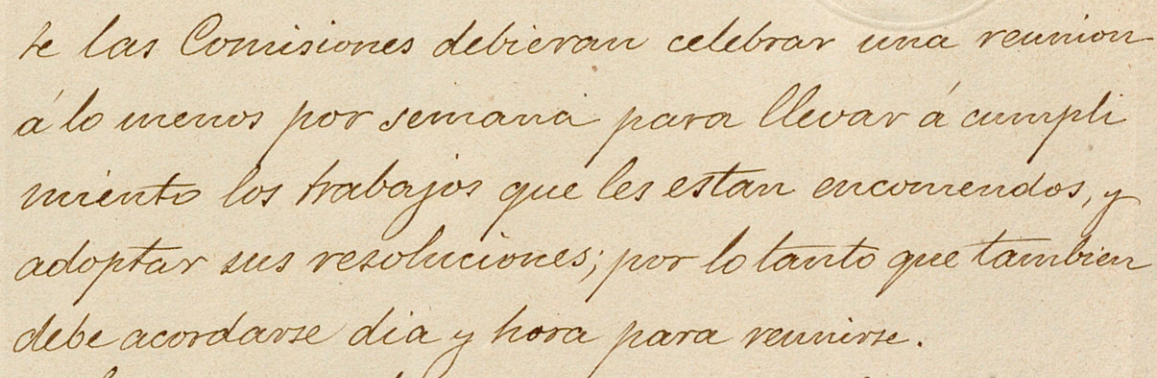 te las Comisiones debieran celebrar una reunion
á lo menos por semana para llevar á cumpli
miento los trabajos que les estan encomendos, y
adoptar sus resoluciones; por lo tanto que tambien
debe acordarse dia y hora para reunirse.